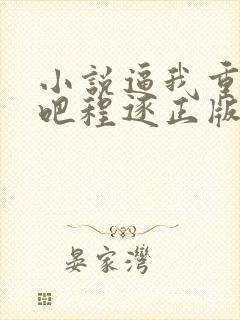 小説逼我重
吧程逐正版
晏家灣